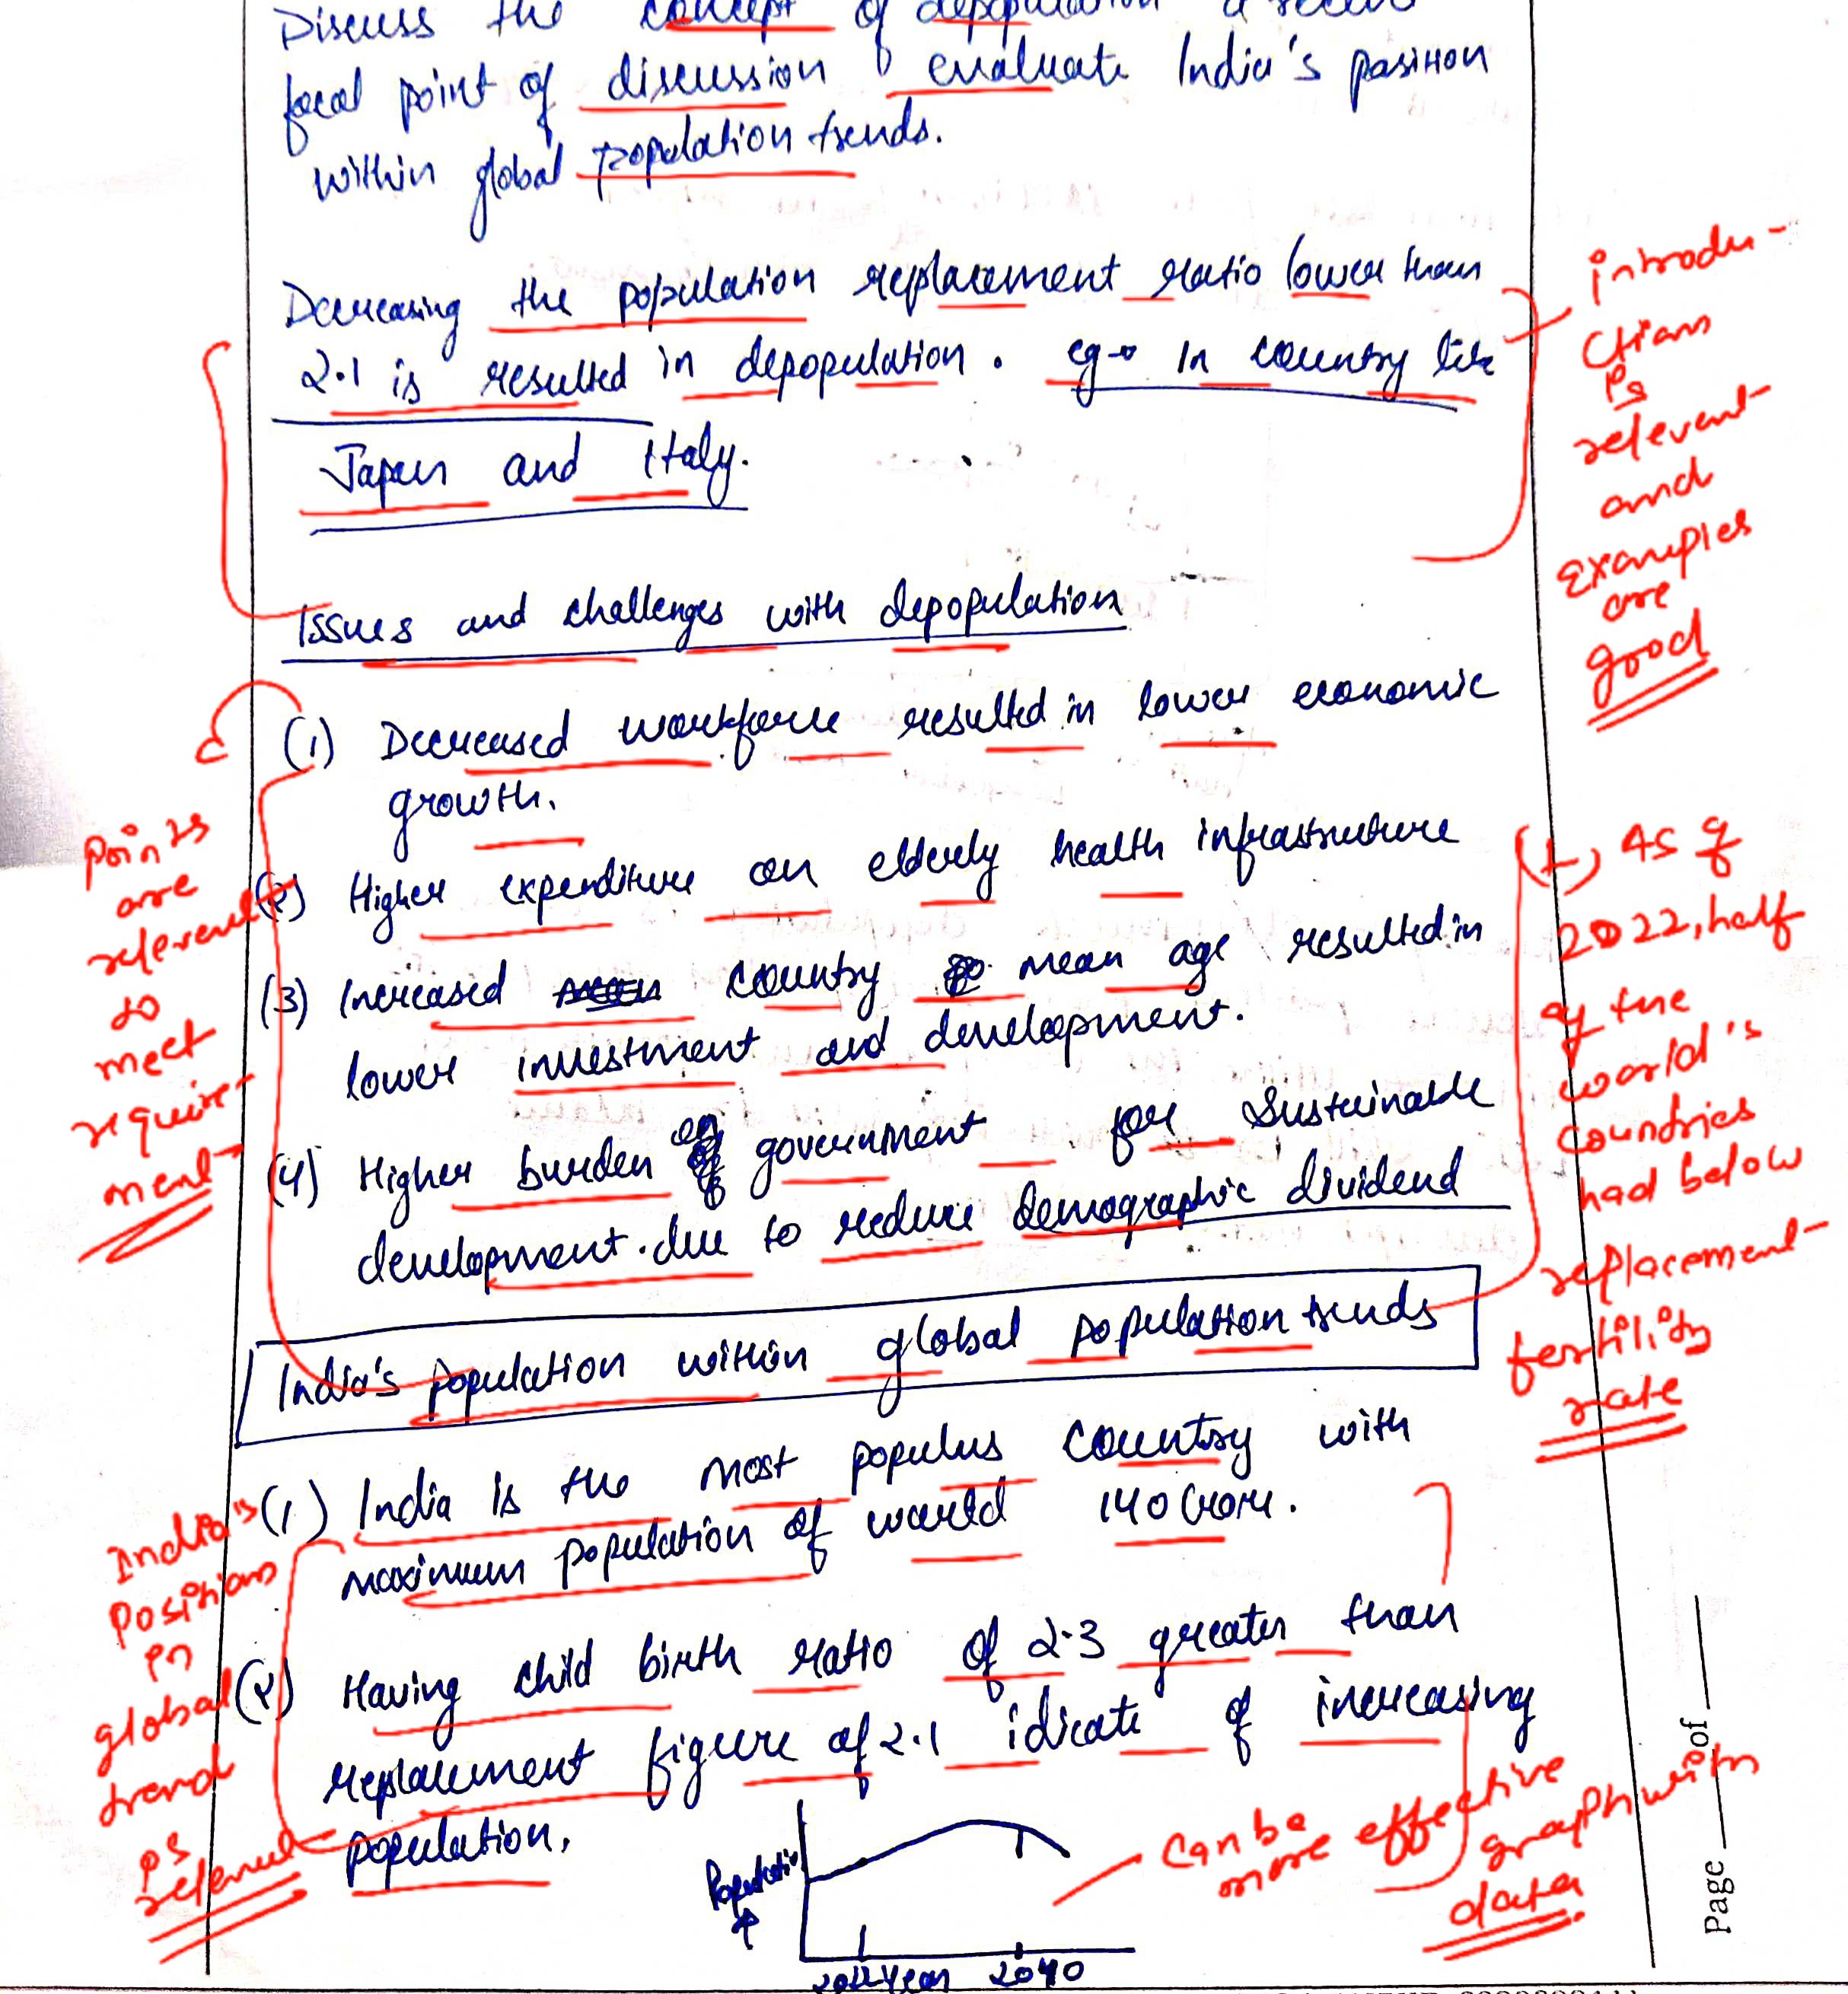 Discuss the concept of depopulation a recent
focal point of discussion & evaluate India's pasition
within global population trends.
Decreasing the population replacement ratio lower than
2.1 is resulted in depopulation. eg→ In country like
Japan and Italy.
introdu-
ction
is
relevant
and
Examples
are
good
Issues and challenges with depopulation
(1) Decreased workforce resulted in lower economic
growth.
(2) Higher expenditure on elderly health infrastruture
(3) Increased country mean age resulted in
lower investment and development.
(4) Higher burden on government for Sustainable
development. due to reduce demographic dividend
points
are
relevent
to
meet
require-
ment
(+) As of
2022, half
of the
world's
countries
had below
replacement
fertility
rate
India's population within global population trends
(1) India is the most populus country with
maximum population of world 140 Crore.
(2) Having child birth ratio of 2.3 greater than
replacement figure of 2.1 idicate of increasing
population.
India's
position
in
global
trend
is
relevent
Population
Year 2040
can be
more effective
graph with
data
Page of